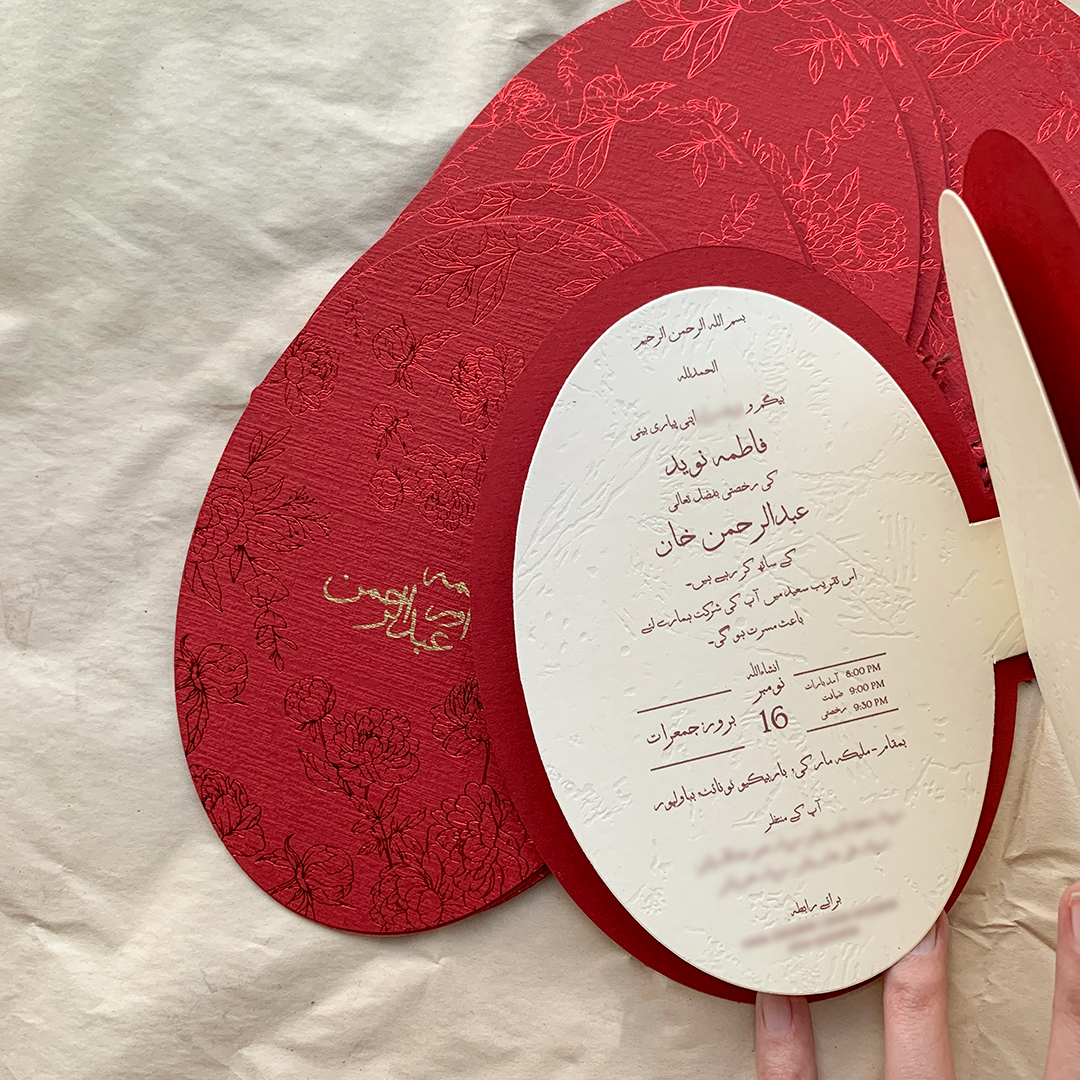 بسم الله الرحمن الرحيم
الحمدللہ
بیگم و
اپنی پیاری بیٹی
فاطمہ نوید
کی رخصتی بفضل تعالی
عبدالرحمن خان
کے ساتھ کر رہے ہیں-
اس تقریب سعید میں آپ کی شرکت ہمارے لئے
باعث مسرت ہو گی-
انشاءاللہ
نومبر
16
بروز جمعرات
آمد بارات 8:00 PM
ضیافت 9:00 PM
رخصتی 9:30 PM
بمقام-ملیکہ مارکی، باربیکیو ٹونائٹ بہاولپور
آپ کے منتظر
برائے رابطہ
عبدالرحمن